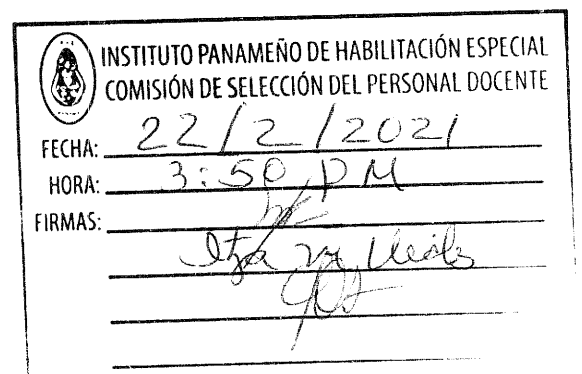 INSTITUTO PANAMEÑO DE HABILITACIÓN ESPECIAL
COMISIÓN DE SELECCIÓN DEL PERSONAL DOCENTE
FECHA: 22/2/2021
HORA: 3:50 PM
FIRMAS:
Itza